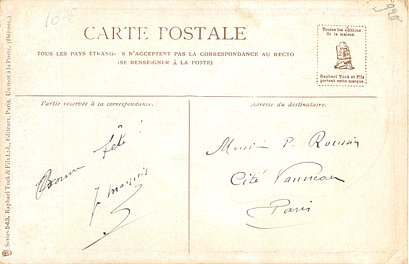 CARTE POSTALE
TOUS LES PAYS ÉTRANG- S N'ACCEPTENT PAS LA CORRESPONDANCE AU RECTO
(SE RENSEIGNER À LA POSTE)
Toutes les éditions
de la maison
Raphael Tuck et Fils
portent cette marque
Partie reservée à la correspondance.
Adresse du destinataire.
Bonne fête!
Monsieur P. Roussin
Cité Vanneau
Paris
Série 543. Raphael Tuck & Fils Ltd., Editeurs, Paris. Un mot à la Poste. (Déposé.)